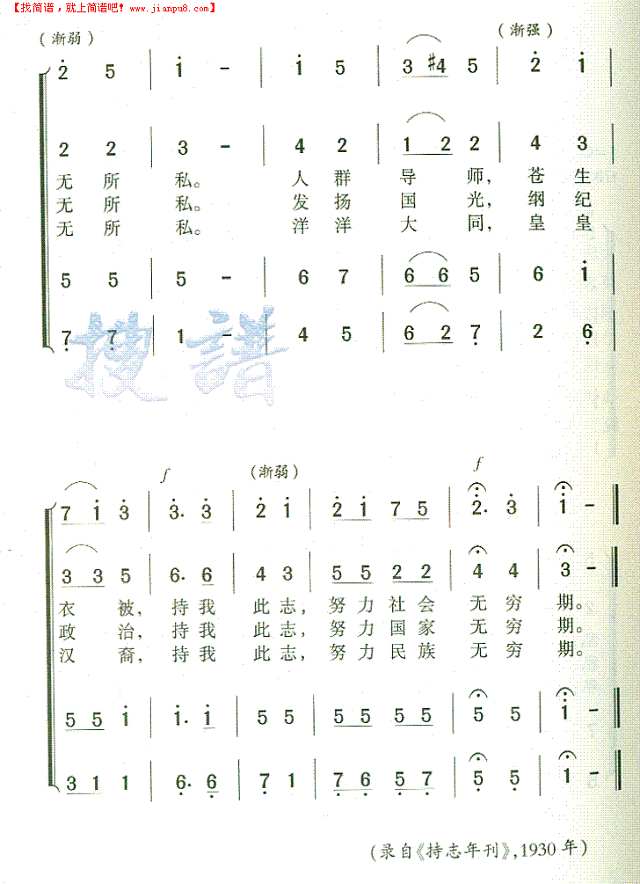 【找简谱，就上简谱吧！www.jianpu8.com】
(渐弱) (渐强)
2 5 | 1 - | 1 5 | 3 #4 5 | 2 1 |
2 2 | 3 - | 4 2 | 1 2 2 | 4 3 |
无所 私。 人群 导 师，苍生
无所 私。 发扬 国 光，纲纪
无所 私。 洋洋 大 同，皇皇
5 5 | 5 - | 6 7 | 6 6 5 | 6 1 |
7 7 | 1 - | 4 5 | 6 2 7 | 2 6 |
搜谱
f (渐弱) f
7 1 3 | 3. 3 | 2 1 | 2 1 7 5 | 2. 3 | 1 - ‖
3 3 5 | 6. 6 | 4 3 | 5 5 2 2 | 4 4 | 3 - ‖
衣 被，持我 此志，努力社会 无穷 期。
政 治，持我 此志，努力国家 无穷 期。
汉 裔，持我 此志，努力民族 无穷 期。
5 5 1 | 1. 1 | 5 5 | 5 5 5 5 | 5 5 | 1 - ‖
3 1 1 | 6. 6 | 7 1 | 7 6 5 7 | 5 5 | 1 - ‖
(录自《持志年刊》，1930年)